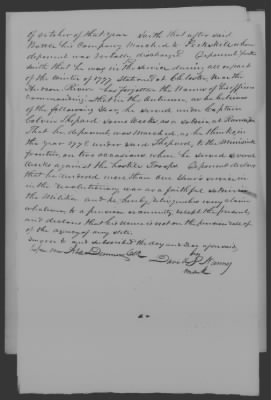 of October of that year Saith that after said
Battle his Company Marched to Peekskill when
deponent was verbally discharged Deponent further
saith that he was in the service during all or part
of the Winter of 1777 Stationed at on the
Hudson River has forgotten the Name of his officer
commanding that in the Autumn, as he believes
of the following Year, he served under Captain
Calvin Shepard some Weeks as a soldier at
That he deponent was marched, as he thinks in
the year 1778 under said Shepard, to the Minisink
frontier, on two occasions when he served several
Weeks against the hostile Deponent declares
that he rendered more than One Years service in
in the Revolutionary war as a faithful soldier in
the Militia and he hereby relinquishes every claim
whatever to a pension or annuity except the present
and declares that his name is not on the pension roll of
of the agency of any state.
Sworn to and subscribed the day and Year aforesaid
by
David
mark